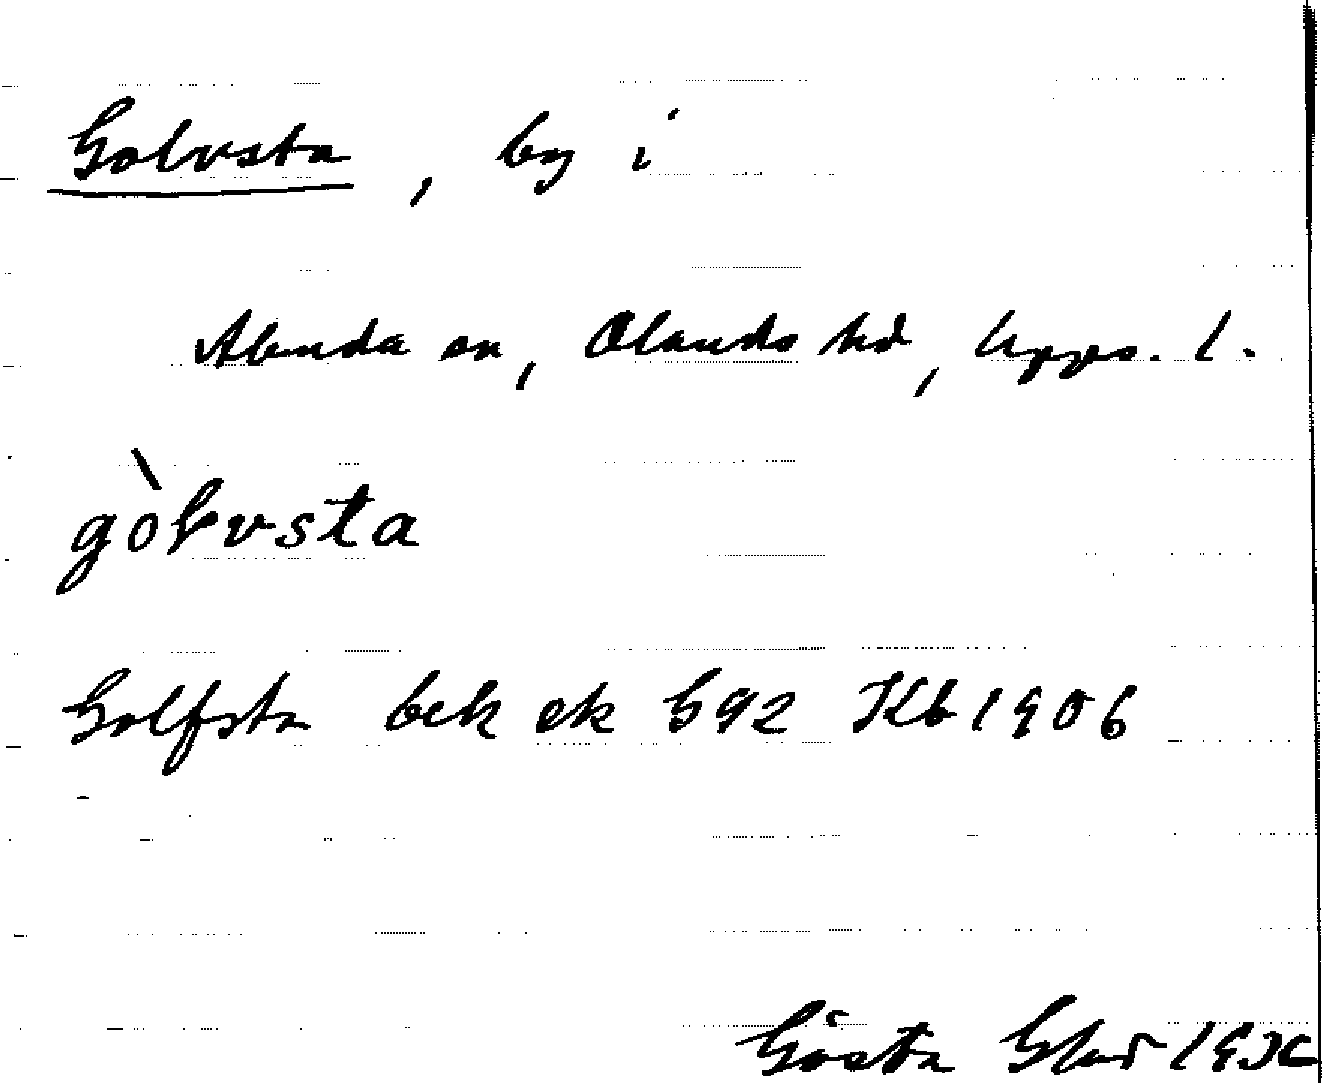 Golvsta, by i
Alunda sn, Olands hd, Upps. l.
gòlvsta
Golfsta bek ek 592 Kb 1906
Gösta